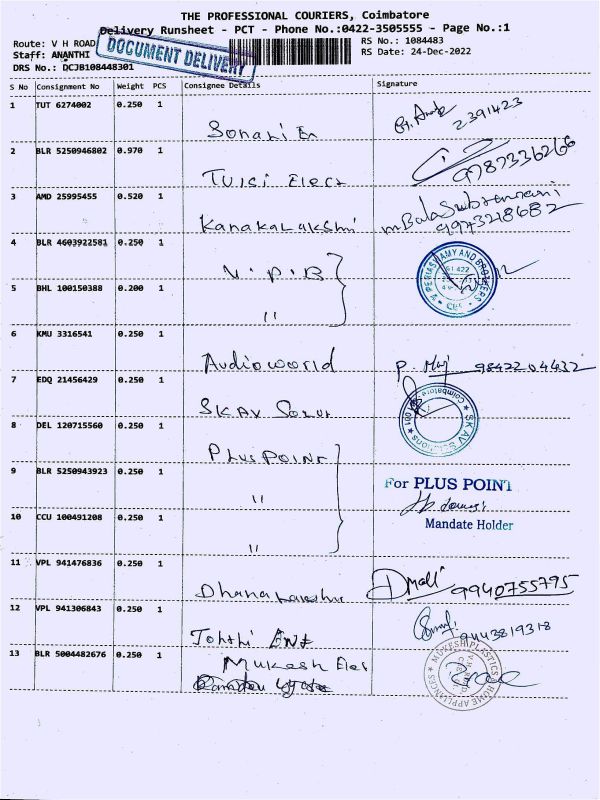 THE PROFESSIONAL COURIERS, Coimbatore
Delivery Runsheet - PCT - Phone No.:0422-3505555 - Page No.:1
Route: V H ROAD
RS No.: 1084483
Staff: ANANTHI
RS Date: 24-Dec-2022
DRS No.: DCJB108448301
DOCUMENT DELIVERY
S No Consignment No Weight PCS Consignee Details Signature
1 TUT 6274002 0.250 1
2391423
2 BLR 5250946802 0.970 1
9787336266
Tulsi Elect
3 AMD 25995455 0.520 1
Kanakalakshmi
9973218682
4 BLR 4603922581 0.250 1
V.P.B
V PERIASWAMY AND BROTHERS
5 BHL 100150388 0.200 1
"
6 KMU 3316541 0.250 1
Audioworld
9842204432
7 EDQ 21456429 0.250 1
SKAV
SKAV Solutions
Coimbatore
8 DEL 120715560 0.250 1
PLUS POINT
9 BLR 5250943923 0.250 1
"
For PLUS POINT
10 CCU 100491208 0.250 1
Mandate Holder
"
11 VPL 941476836 0.250 1
Dhanalakshmi
9940755795
12 VPL 941306843 0.250 1
Ent
9443819318
13 BLR 5004482676 0.250 1
Mukesh Elec
MUKESH PLASTICS & HOME APPLIANCES